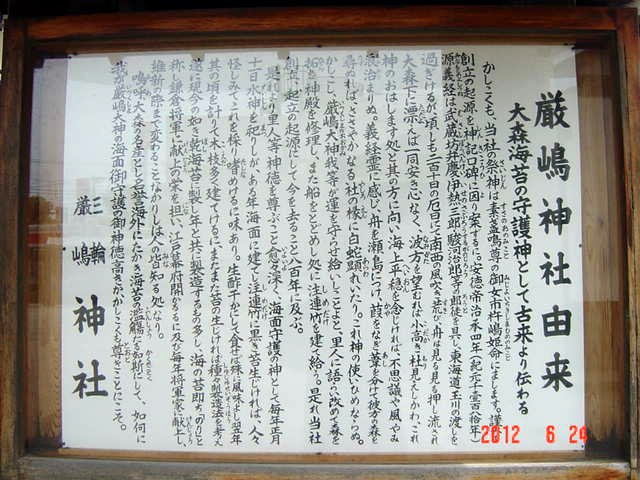 厳嶋神社由来
大森海苔の守護神として古来より伝わる
かしこくも、当社の祭神は素盞嗚尊の御女市杵嶋姫命にまします。謹
創立の起源を神記口碑に因り案ずるに。安徳帝治承四年(紀元千八百四拾年)
源義経は武蔵坊弁慶伊勢三郎駿河治郎等の郎徒を具し東海道玉川の渡しを
過ぎけるが、頃しも二百十日の厄日にて南西の風吹き荒び舟は見る見る押し流され
大森下に漂えば一同安き心なく、波方を望むれば小高き杜見えしかわこれ
神のおはします処と其の方に向い海上平穏を念じければ、不思議や風やみ
浪治まりぬ。義経霊に感じ舟を瀬島につけ、葭をなぎ葉を分けて彼方の森を
尋ぬれば、ささやかなる社の椽に白蛇顕れいたり。これ神の使いならめ
かしこし、厳嶋大神我等が運を守らせ給いしことよと、里人に語い改めて森を
拓き神殿を修理し、また船をとどめし処に注連竹を建て給う。是れ当社
創立、起立の起源にして今を去ること八百年に及ぶ。
是れより里人等神徳を尊ぶこと愈々深く、海面守護の神として毎年正月
十日水神を祀りしが、ある年海面に建てし注連竹に黒き苔生じければ、人々
怪しみてこれを採り嘗めけるに味あり。生酢干などして食せば殊に風味よし。翌年
其の頃を計りて木枝多く建てけるに、またまた苔の生じければ種々製造法を考え
遂に現今の如き乾海苔に製し年と共に製造するもの多し、海の苔即ち(のり)と
称し鎌倉将軍に献上の栄を担い、江戸幕府開かるるに及び毎年将軍家に献上し、
維新の際まで変わることなかりしは人の皆知る処なり。
嗚呼大森の名産として名誉海外にたかき海苔の濫觴たる如斯にして、如何に
我が厳嶋大神の海面御守護の御神徳高きか、かしこくも尊きことにこそ。
三輪
厳嶋神社
2012 6 24